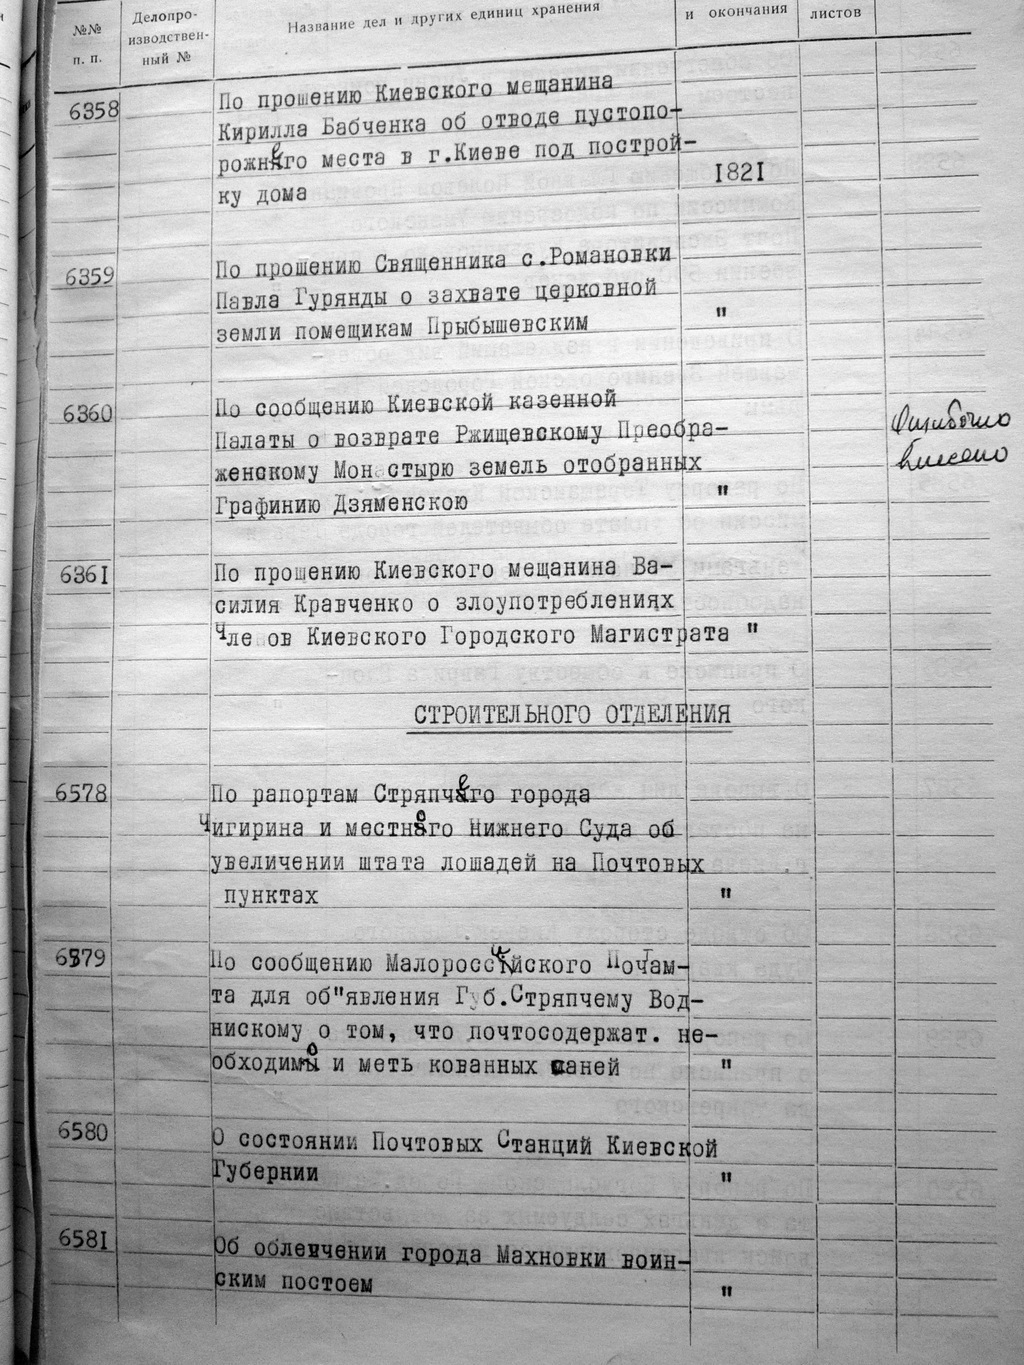 №№ п. п.
Делопро-
изводствен-
ный №
Название дел и других единиц хранения
и окончания
листов
6358
По прошению Киевского мещанина
Кирилла Бабченка об отводе пустопо-
рожнего места в г.Киеве под построй-
ку дома
1821
6359
По прошению Священника с.Романовки
Павла Гурянды о захвате церковной
земли помещикам Прыбышевским
"
6360
По сообщению Киевской казенной
Палаты о возврате Ржищевскому Преобра-
женскому Монастырю земель отобранных
Графинию Дзяменскою
"
Ошибочно
внесено
6361
По прошению Киевского мещанина Ва-
силия Кравченко о злоупотреблениях
Чле ов Киевского Городского Магистрата "
СТРОИТЕЛЬНОГО ОТДЕЛЕНИЯ
6578
По рапортам Стряпчего города
Чигирина и местного Нижнего Суда об
увеличении штата лошадей на Почтовых
пунктах
"
6579
По сообщению Малороссийского Почтам-
та для об"явления Губ.Стряпчему Вод-
нискому о том, что почтосодержат. не-
обходимо и меть кованных саней
"
6580
О состоянии Почтовых Станций Киевской
Губернии
"
6581
Об облевчении города Махновки воин-
ским постоем
"